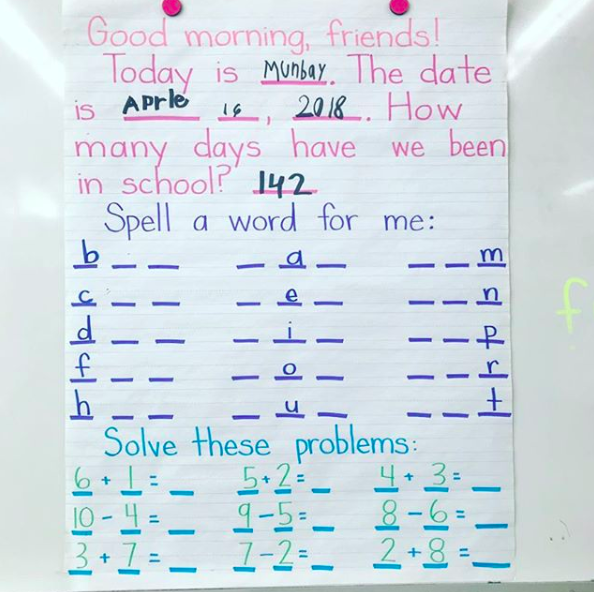 Good morning, friends!
Today is Munbay. The date
is APrle 16, 2018. How
many days have we been
in school? 142
Spell a word for me:
b _ _ _ a _ _ _ m
c _ _ _ e _ _ _ n
d _ _ _ i _ _ _ p
f _ _ _ o _ _ _ r
h _ _ _ u _ _ _ t
Solve these problems:
6 + 1 = _ 5 + 2 = _ 4 + 3 = _
10 - 4 = _ 9 - 5 = _ 8 - 6 = _
3 + 7 = _ 7 - 2 = _ 2 + 8 = _
f